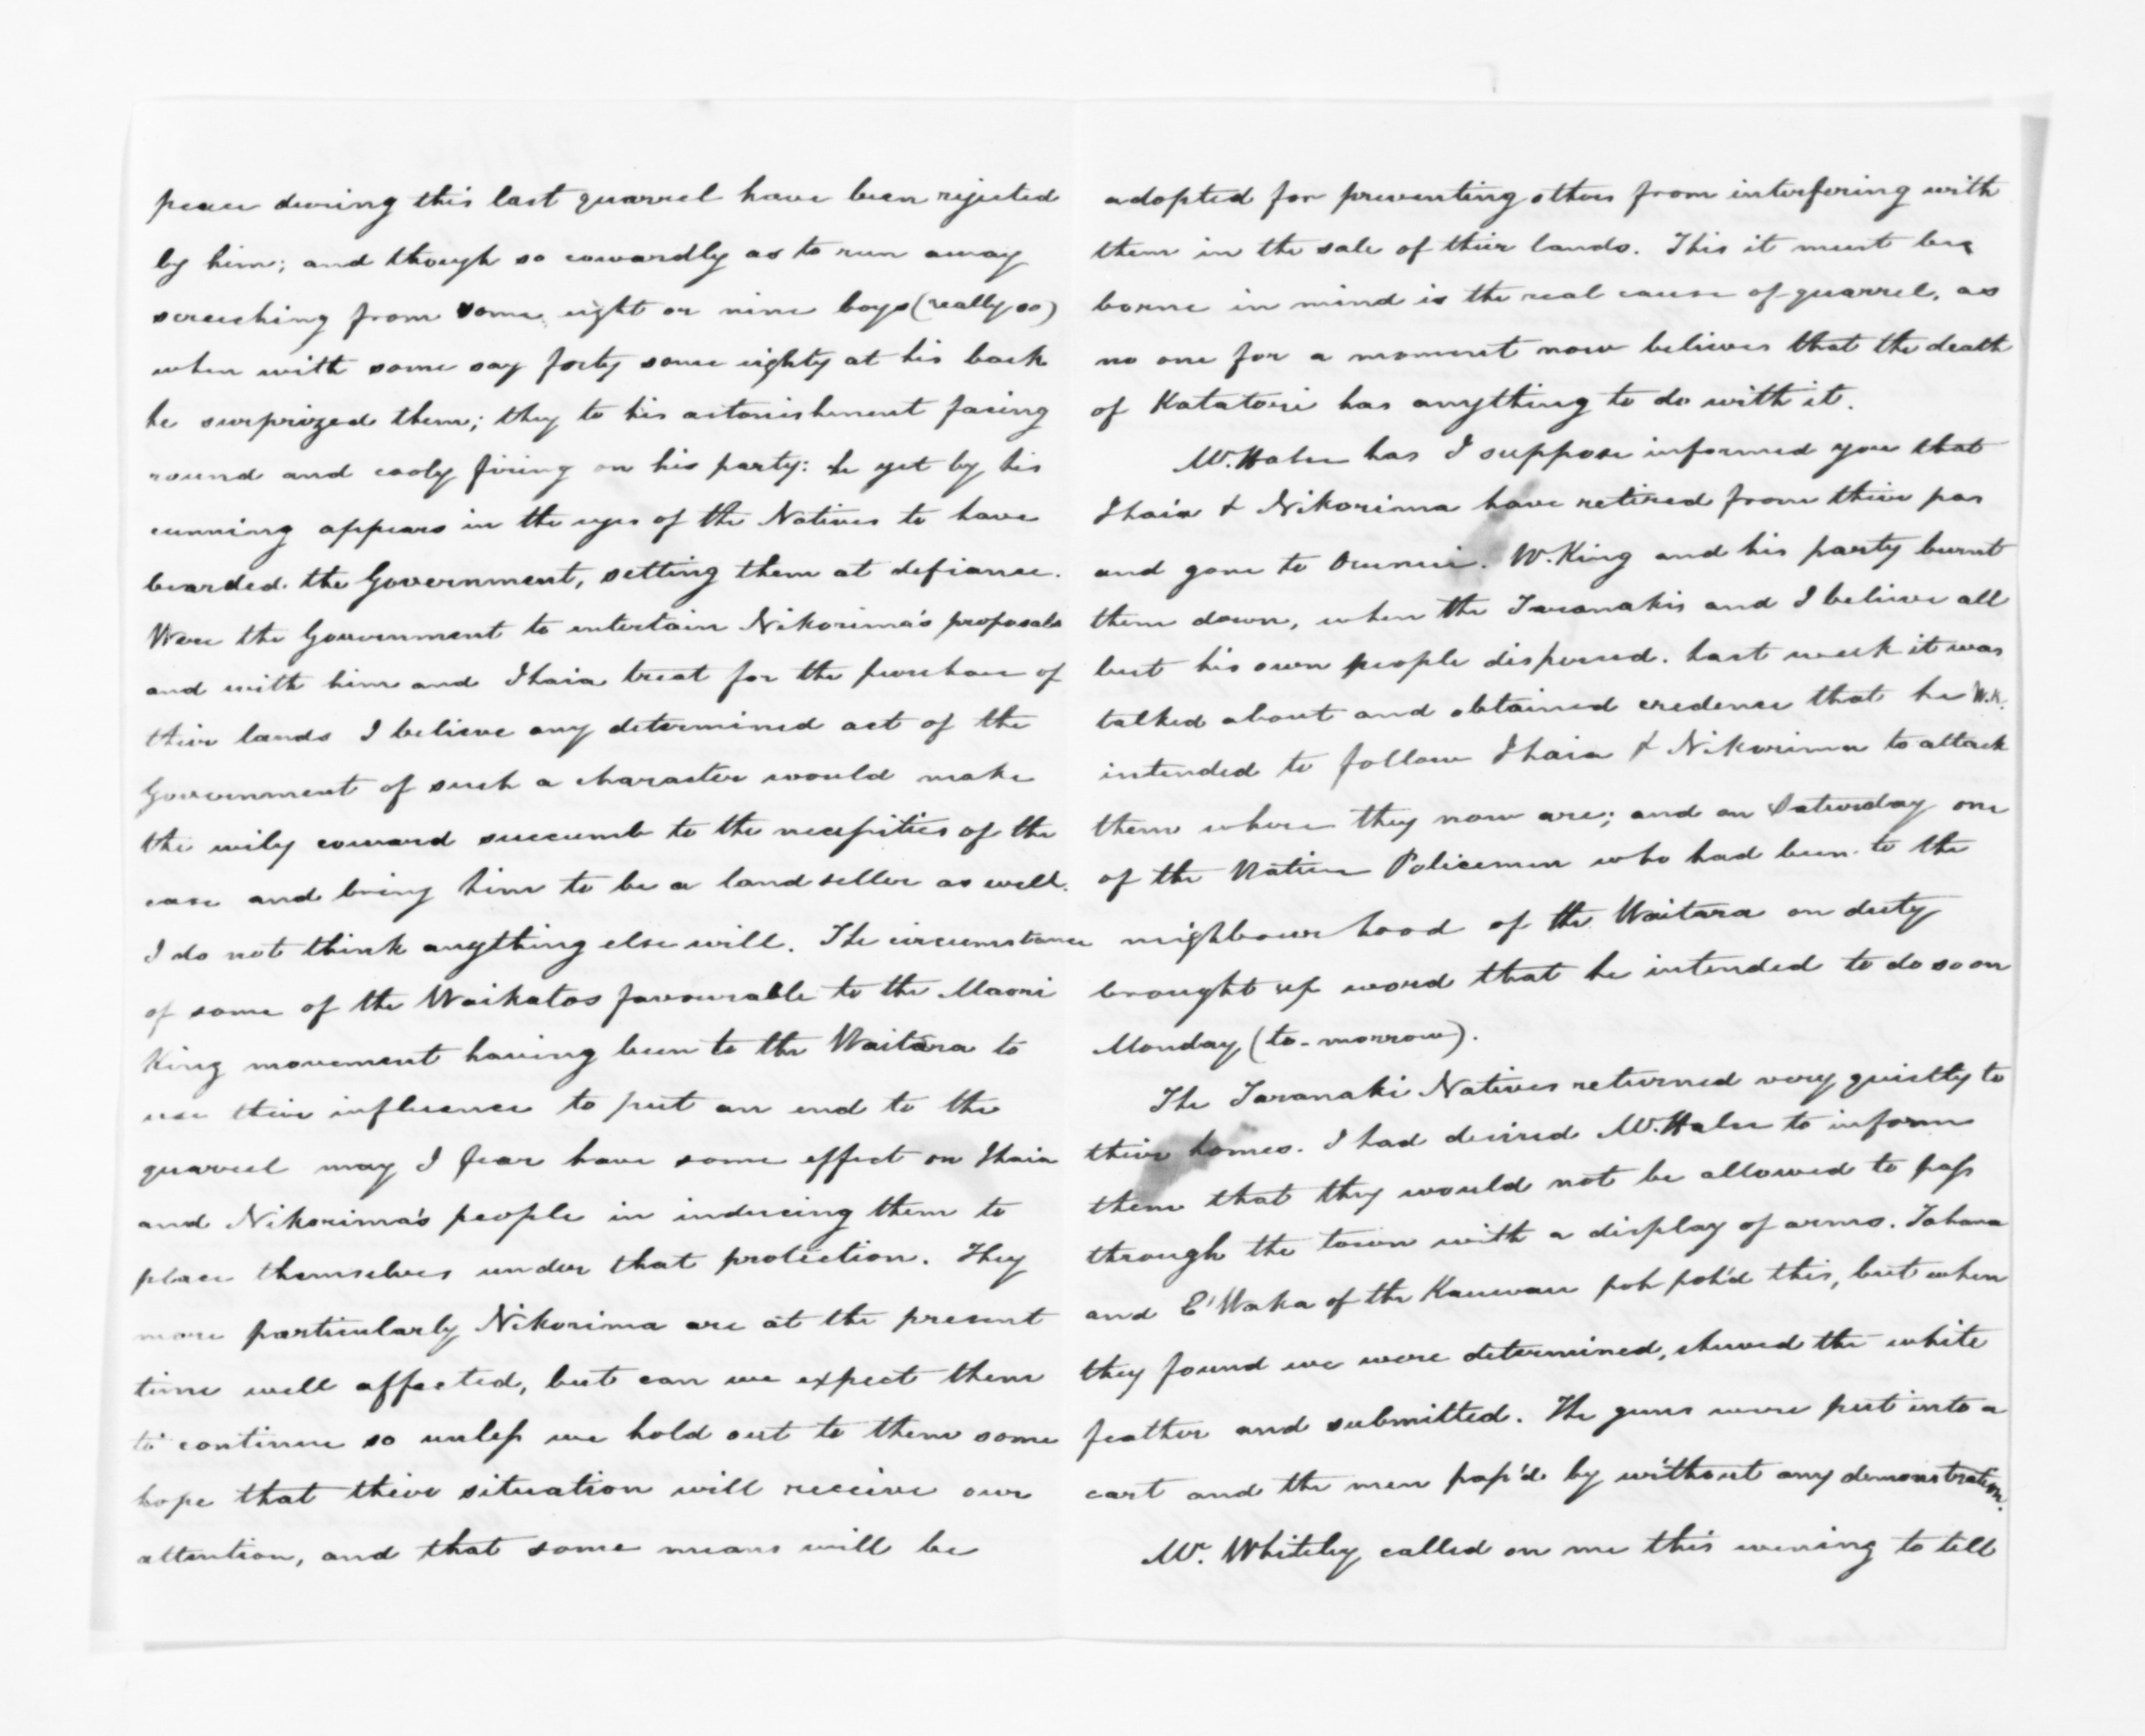 peace during this last quarrel have been rejected
by him; and though so cowardly as to run away
screeching from some eight or nine boys (really so)
when with some say forty some eighty at his back
he surprized them; they to his astonishment facing
round and cooly firing on his party: he yet by his
cunning appears in the eyes of the Natives to have
bearded the Government, setting them at defiance.
Were the Government to entertain Nikorima's proposals
and with him and Ihaia treat for the purchase of
their lands I believe any determined act of the
Government of such a character would make
the wily coward succumb to the necessities of the
case and bring him to be a land seller as well.
I do not think anything else will. The circumstance
of some of the Waikatos favourable to the Maori
King movement having been to the Waitara to
use their influence to put an end to the
quarrel may I fear have some effect on Ihaia
and Nikorima's people in inducing them to
place themselves under that protection. They
more particularly Nikorima are at the present
time well affected, but can we expect them
to continue so unless we hold out to them some
hope that their situation will receive our
attention, and that some means will be
adopted for preventing others from interfering with
them in the sale of their lands. This it must be
borne in mind is the real cause of quarrel, as
no one for a moment now believes that the death
of Katatore has anything to do with it.
Mr. Halse has I suppose informed you that
Ihaia & Nikorima have retired from their pas
and gone to . W. King and his party burnt
them down, when the Taranakis and I believe all
but his own people dispersed. Last week it was
talked about and obtained credence that he W.K.
intended to follow Ihaia & Nikorima to attack
them where they now are; and on Saturday one
of the Native Policemen who had been to the
neighbourhood of the Waitara on duty
brought up word that he intended to do so on
Monday (to-morrow).
The Taranaki Natives returned very quietly to
their homes. I had desired Mr. Halse to inform
them that they would not be allowed to pass
through the town with a display of arms. Tahana
and E'Waka of the Kauwau poh poh'd this, but when
they found we were determined, shewed the white
feather and submitted. The guns were put into a
cart and the men pass'd by without any demonstration.
Mr. Whiteley called on me this evening to tell